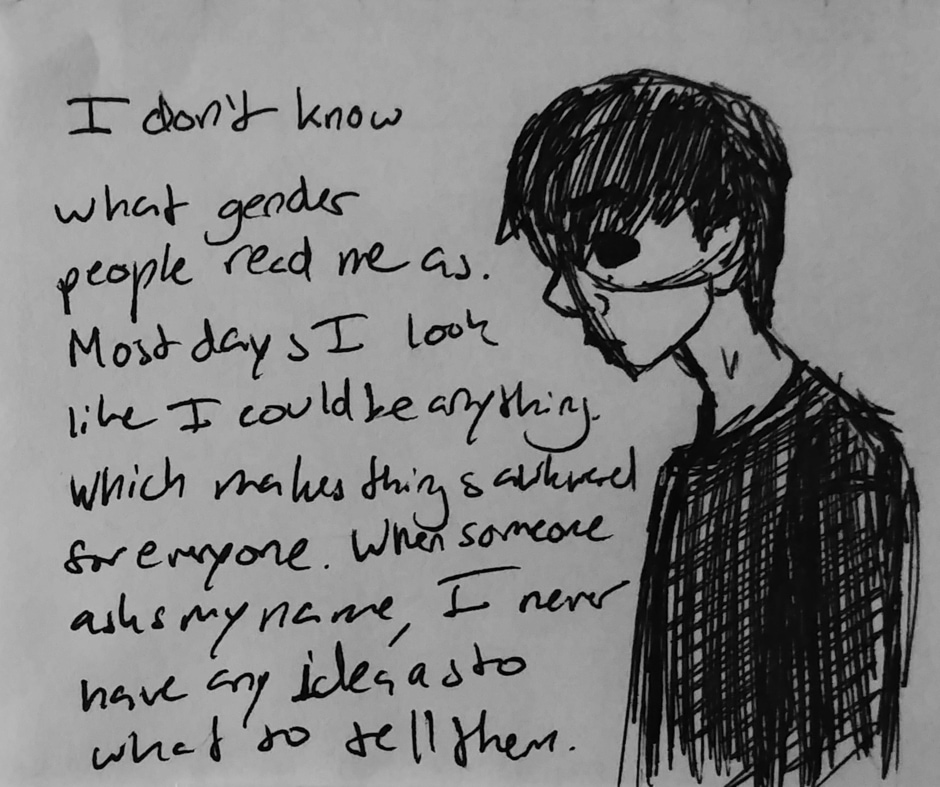 I don't know
what gender
people read me as.
Most days I look
like I could be anything.
which makes things awkward
for everyone. When someone
asks my name, I never
have any idea as to
what to tell them.